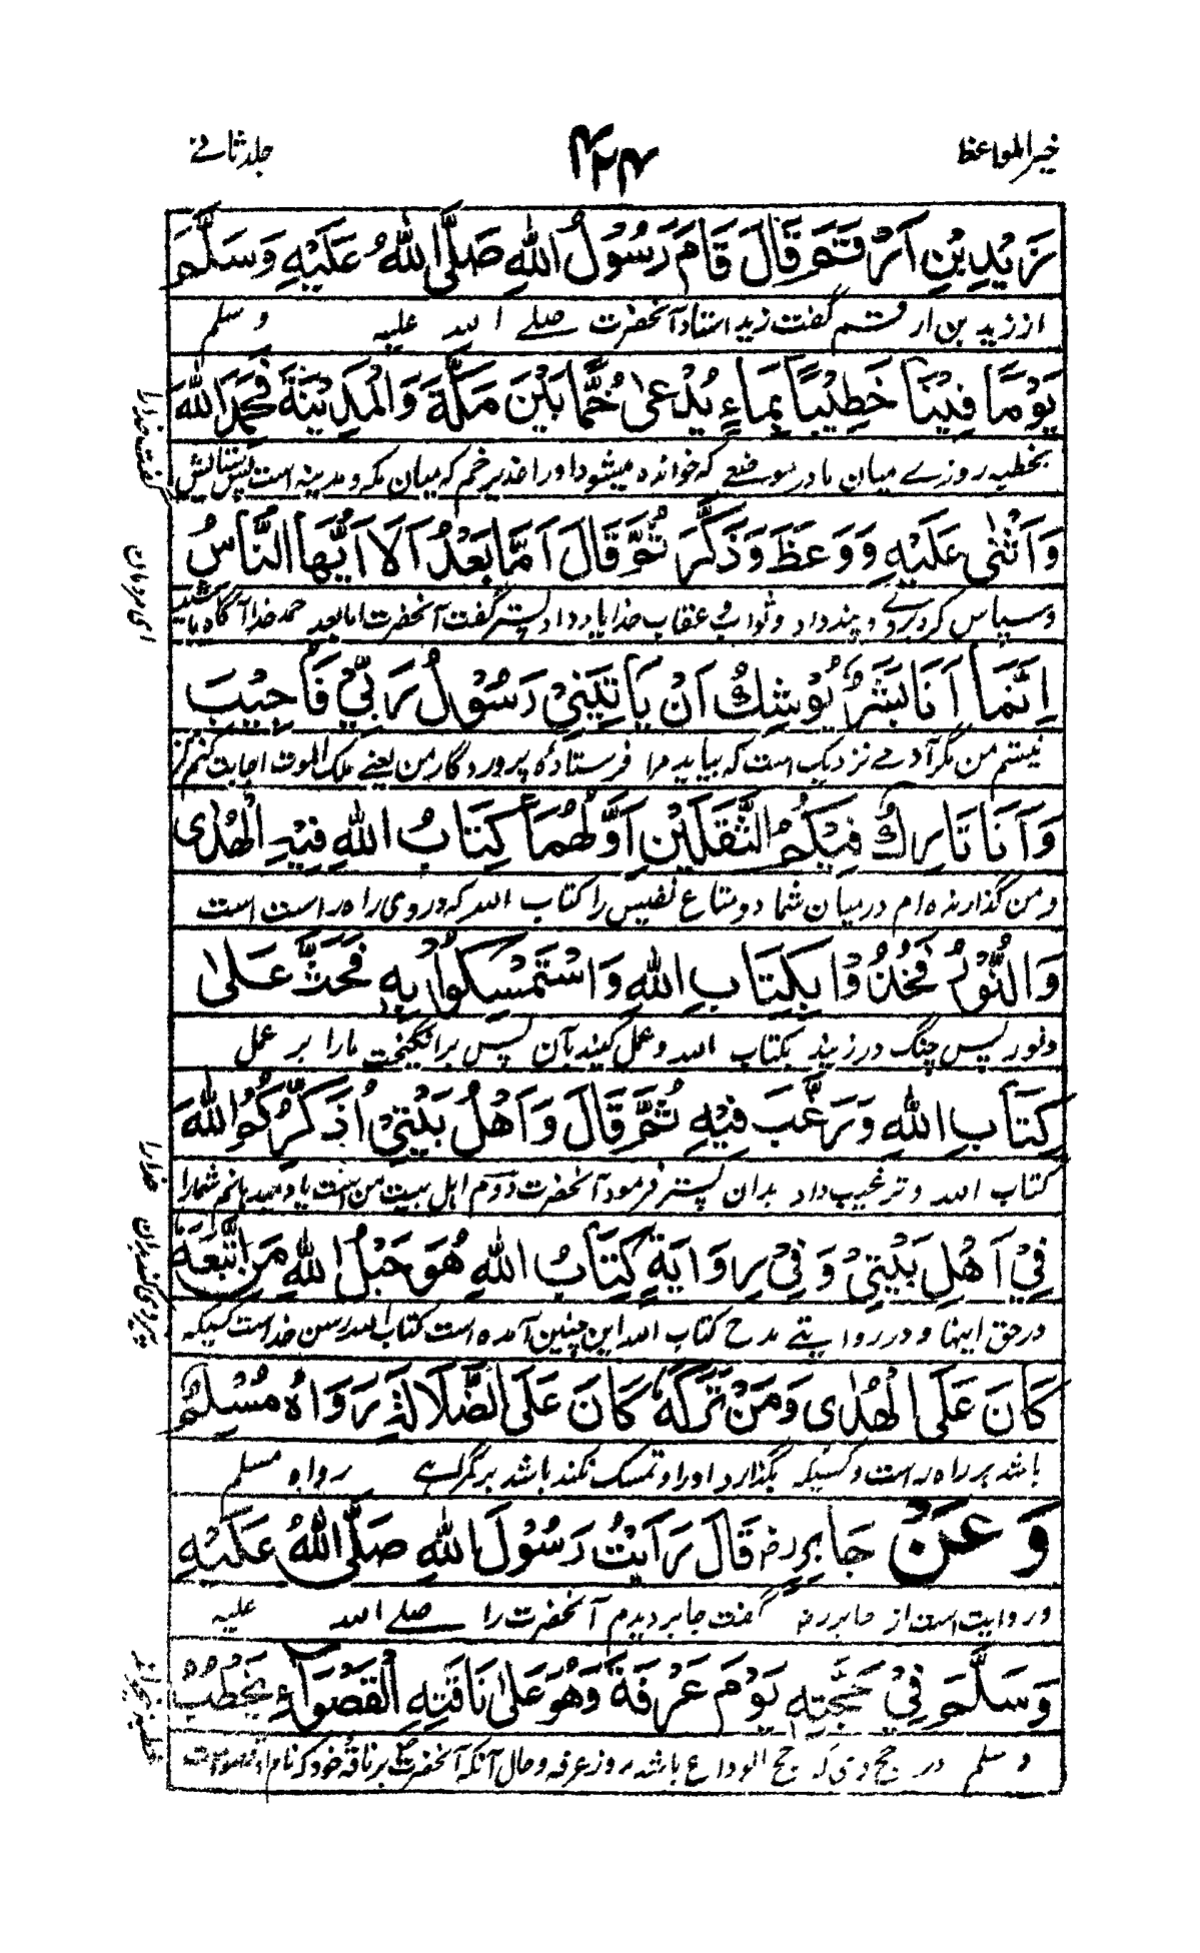 خیر المواعظ
جلد ثانے
زَيْدِ بْنِ اَرْقَمَ قَالَ قَامَ رَسُوْلُ اللّٰهِ صَلَّى اللّٰهُ عَلَيْهِ وَسَلَّمَ
از زید بن ارقم گفت زید استاد آنحضرت صلے اللہ علیہ وسلم
يَوْمًا فِيْنَا خَطِيْبًا بِمَاءٍ يُدْعٰى خُمًّا بَيْنَ مَكَّةَ وَالْمَدِيْنَةِ فَحَمِدَ اللّٰهَ
بخطبہ روزے میان ما در موضعے کہ خواندہ میشود اورا غدیر خم کہ میان مکہ و مدینہ است پس ستایش
گفت خدا را
وَاَثْنٰى عَلَيْهِ وَوَعَظَ وَذَكَّرَ ثُمَّ قَالَ اَمَّا بَعْدُ اَلَا اَيُّهَا النَّاسُ
وسپاس کرد بروے و پند داد و ثواب و عقاب خدا یاد داد پستر گفت آنحضرت اما بعد حمد خدا آگاہ باشید
ای مردمان
اِنَّمَا اَنَا بَشَرٌ يُوْشِكُ اَنْ يَاْتِيَنِيْ رَسُوْلُ رَبِّيْ فَاُجِيْبَ
نیستم من مگر آدمے نزدیک است کہ بیاید مرا فرستادۂ پروردگار من یعنے ملک الموت اجابت کنم
وَاَنَا تَارِكٌ فِيْكُمُ الثَّقَلَيْنِ اَوَّلُهُمَا كِتَابُ اللّٰهِ فِيْهِ الْهُدٰى
و من گذارندہ ام درمیان شما دو متاع نفیس را کتاب اللہ کہ در وی راہ راست است
وَالنُّوْرُ فَخُذُوْا بِكِتَابِ اللّٰهِ وَاسْتَمْسِكُوْا بِهٖ فَحَثَّ عَلٰى
و نور پس چنگ در زنید بکتاب اللہ و عمل کنید بآن پس برانگیخت مارا بر عمل
كِتَابِ اللّٰهِ وَرَغَّبَ فِيْهِ ثُمَّ قَالَ وَاَهْلُ بَيْتِيْ اُذَكِّرُكُمُ اللّٰهَ
کتاب اللہ و ترغیب داد بدان پستر فرمود آنحضرت دوم اہل بیت من است یاد میدہانم شمارا
خدا را
فِيْ اَهْلِ بَيْتِيْ وَفِيْ رِوَايَةٍ كِتَابُ اللّٰهِ هُوَ حَبْلُ اللّٰهِ مَنِ اتَّبَعَهٗ
در حق اینہا و در روایتے مدح کتاب اللہ این چنین آمدہ است کتاب اللہ رسن خداست کسیکہ
كَانَ عَلَى الْهُدٰى وَمَنْ تَرَكَهٗ كَانَ عَلَى الضَّلَالَةِ رَوَاهُ مُسْلِمٌ
باشد بر راہ راست و کسیکہ بگذارد اورا و تمسک نکند باشد بر گمراہے رواہ مسلم
وَعَنْ جَابِرٍ رض قَالَ رَاَيْتُ رَسُوْلَ اللّٰهِ صَلَّى اللّٰهُ عَلَيْهِ
و روایت است از جابر رض گفت جابر دیدم آنحضرت را صلے اللہ علیہ
وَسَلَّمَ فِيْ حَجَّتِهٖ يَوْمَ عَرَفَةَ وَهُوَ عَلٰى نَاقَتِهِ الْقَصْوَاءِ يَخْطُبُ
وسلم در حج وی کہ حج الوداع باشد روز عرفہ و حال آنکہ آنحضرت بر ناقۂ خود کہ نام